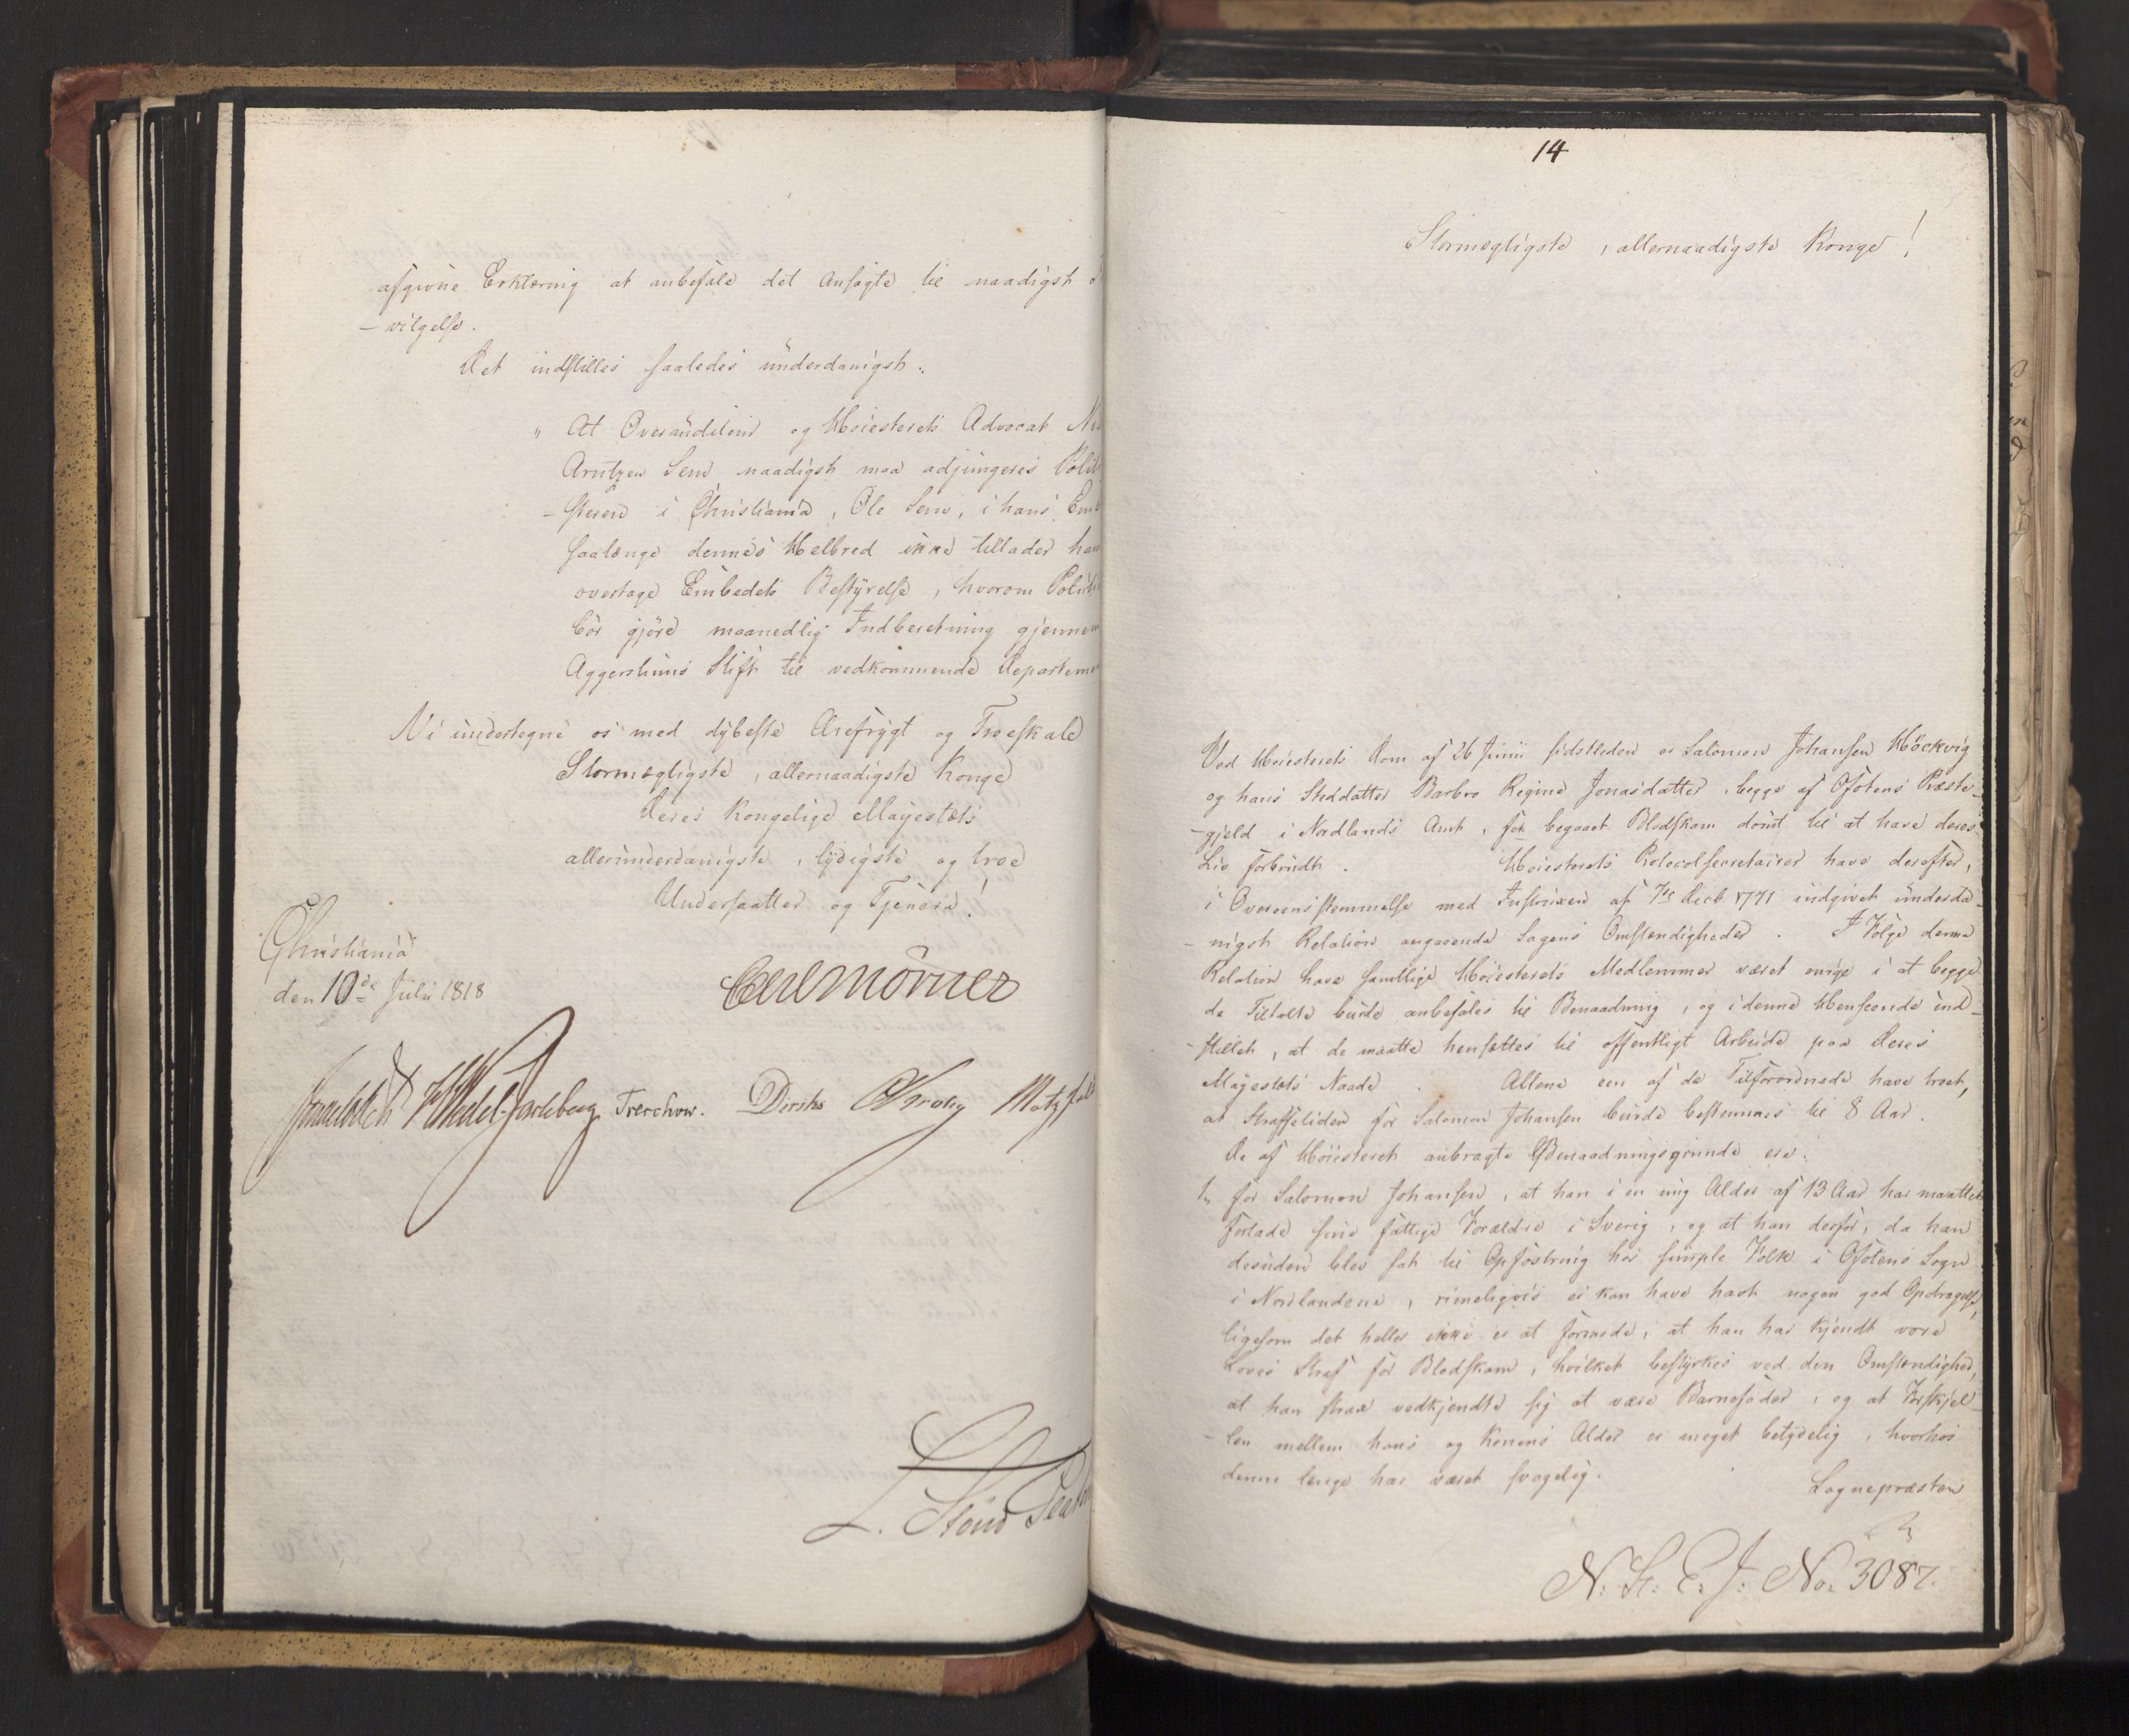 afgivne Erklæring at anbefale det Ansøgte til naadigst
- vilgelse.
Det indstilles saaledes underdanigst:
" At Overauditeur og Høiesterets Advocat
Arntzen Senn naadigst maa adjungeres
- steren i Christiania, Ole Senn, i hans
saalænge dennes Helbred ikke tillader
overtage Embedets Bestyrelse, hvorom
bør gjøre maanedlig Indberetning gjennem
Aggershuus Stift til vedkommende
Vi undertegne os med dybeste Ærefrygt og Troeskab
Stormægtigste, allernaadigste Konge
Deres Kongelige Majestæts
allerunderdanigste, lydigste og troe
Undersaatter og Tjenere!
Christiania
den 10de Julii 1818
Carl Mörner
Sommerhielm HWedel-Jarlsberg Treschow. Diriks CKrohg Motzfeldt
L. Stoud
14
Stormægtigste, allernaadigste Konge!
Ved Høiesterets Dom af 26 Junii sidstleden er Salomon Johansen Höckvig
og hans Steddatter Barbro Regine Jonasdatter, begge af Ofotens Præste-
- gjeld i Nordlands Amt, for begaaet Blodskam dömt til at have deres
Liv forbrudt. Høiesterets Protocolsecretairer have derefter,
i Overeensstemmelse med Instruxen af 7de Decb 1771 indgivet underda-
- nigst Relation angaaende Sagens Omstændigheder. I Følge denne
Relation have samtlige Høiesterets Medlemmer været enige i at begge
de Tiltalte burde anbefales til Benaadning, og i denne Henseende ind-
- stillet, at de maatte hensættes til offentligt Arbeide paa Deres
Majestæts Naade. Allene een af de Tilforordnede have troet,
at Straffetiden for Salomon Johansen burde bestemmes til 8 Aar.
De af Høiesteret anbragte Benaadningsgrunde ere:
1, for Salomon Johansen, at han i en ung Alder af 13 Aar har maattet
forlade sine fattige Forældre i Sverig, og at han derfor, da han
desuden blev sat til Opfostring hos simple Folk i Ofotens Sogn
i Nordlandene, rimeligviis ei kan have havt nogen god Opdragelse,
ligesom det heller ikke er at formode, at han har kjendt vore
Loves Straf for Blodskam, hvilket bestyrkes ved den Omstændighed,
at han strax vedkjendte sig at være Barnefader, og at Forskjel-
- len mellem hans og Konens Alder er meget betydelig, hvorhos
denne længe har været svagelig.
Sognepræsten
N: St: C: J: No: 3087.